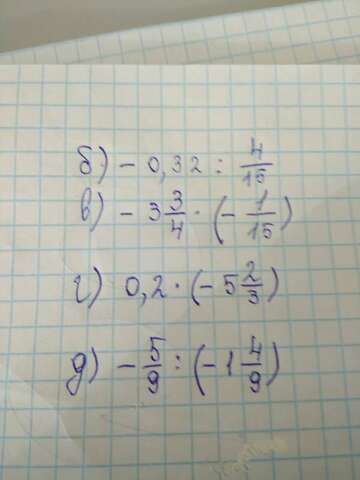 б) - 0,32 : 4/15
в) - 3 3/4 · (- 1/15)
г) 0,2 · (- 5 2/3)
д) - 5/9 : (- 1 4/9)